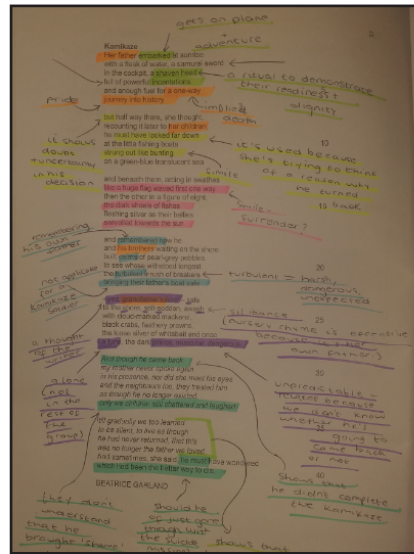 gets on plane
+
adventure
Kamikaze
Her father embarked at sunrise
with a flask of water, a samurai sword
in the cockpit, a shaven head
full of powerful incantations
and enough fuel for a one-way
journey into history
a ritual to demonstrate
their readiness +
dignity
pride
implied
death
but half way there, she thought,
recounting it later to her children,
he must have looked far down
at the little fishing boats
strung out like bunting
on a green-blue translucent sea
10
it shows
doubt
+ uncertainty
in his
decision
it's used because
she's trying to think
of a reason why
he turned
back
simile
and beneath them, arcing in swathes
like a huge flag waved first one way
then the other in a figure of eight,
the dark shoals of fishes
flashing silver as their bellies
swivelled towards the sun
simile
surrender?
remembering
his own
father
and remembered how he
and his brothers waiting on the shore
built cairns of pearl-grey pebbles
to see whose withstood longest
the turbulent inrush of breakers
bringing their father's boat safe
20
turbulent = harsh,
dangerous,
unexpected
not applicable
for a
kamikaze
soldier
safe
to the shore, salt-sodden, awash
with cloud-marked mackerel,
black crabs, feathery prawns,
the loose silver of whitebait and once
a tuna, the dark prince, muscular, dangerous.
25
sibilance
a thought
of the
And though he came back
my mother never spoke again
in his presence, nor did she meet his eyes
and the neighbours too, they treated him
as though he no longer existed,
only we children still chattered and laughed
30
35
unpredictable -
because
we don't know
whether he's
going to
come back
or not
alone
(not
in the
rest of
the
group)
till gradually we too learned
to be silent, to live as though
he had never returned, that this
was no longer the father we loved.
And sometimes, she said, he must have wondered
which had been the better way to die.
40
BEATRICE GARLAND
shows that
he didn't complete
the Kamikaze
they don't
understand
that he
brought 'shame'
should he
of just gone
through with
the suicide
mission
shows that